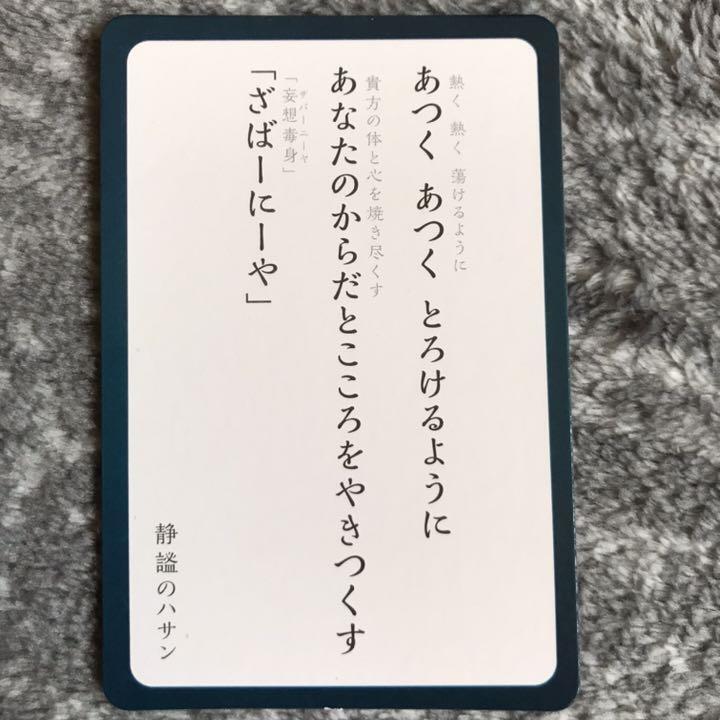 熱く 熱く 蕩けるように
あつく あつく とろけるように
貴方の体と心を焼き尽くす
あなたのからだとこころをやきつくす
ザバーニーヤ
「妄想毒身」
「ざばーにーや」
静謐のハサン